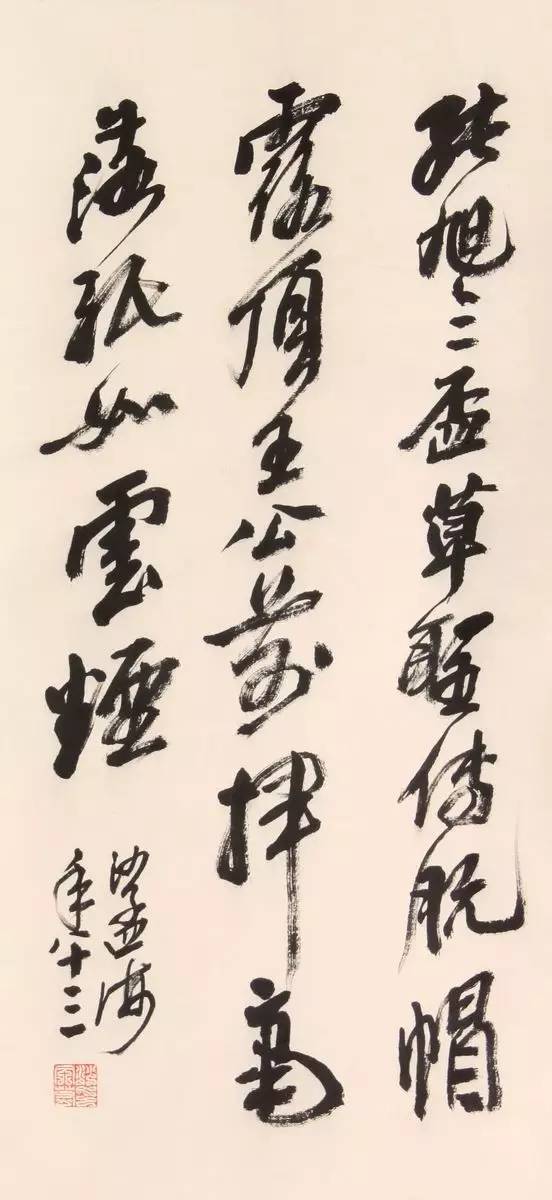 張旭三盃草聖傳脫帽
露頂王公前揮毫
落紙如雲煙
沙孟海
年八十三